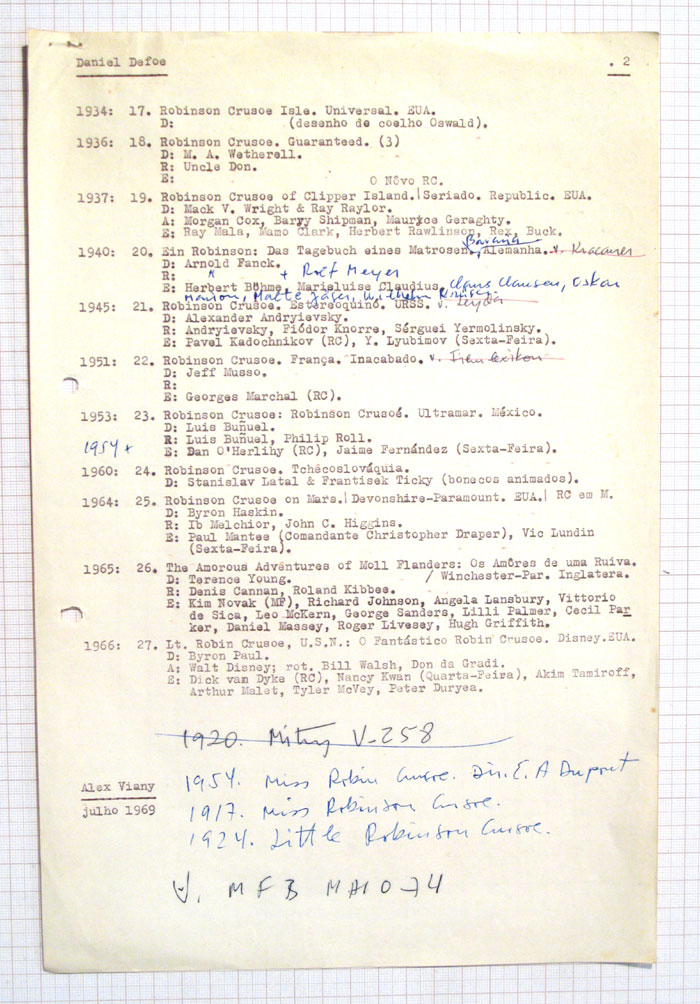 Daniel Defoe . 2
1934: 17. Robinson Crusoe Isle. Universal. EUA.
D: (desenho de coelho Oswald).
1936: 18. Robinson Crusoe. Guaranteed. (3)
D: M. A. Wetherell.
R: Uncle Don.
E: O Nôvo RC.
1937: 19. Robinson Crusoe of Clipper Island. Seriado. Republic. EUA.
D: Mack V. Wright & Ray Raylor.
A: Morgan Cox, Barry Shipman, Maurice Geraghty.
E: Ray Mala, Mamo Clark, Herbert Rawlinson, Rex, Buck.
Bavaria
1940: 20. Ein Robinson: Das Tagebuch eines Matrosen. Alemanha. v. Kracauer
D: Arnold Fanck.
R: " + Rolf Meyer
E: Herbert Böhme, Marieluise Claudius, Claus Clausen, Oskar
Marion, Malte Jäger, Wilhelm
1945: 21. Robinson Crusoe. Estereoquino. URSS. v. Leyda
D: Alexander Andryievsky.
R: Andryievsky, Fiódor Knorre, Sérguei Yermolinsky.
E: Pavel Kadochnikov (RC), Y. Lyubimov (Sexta-Feira).
1951: 22. Robinson Crusoe. França. Inacabado. v. Filmlexikon
D: Jeff Musso.
R:
E: Georges Marchal (RC).
1953: 23. Robinson Crusoe: Robinson Crusoé. Ultramar. México.
D: Luis Buñuel.
R: Luis Buñuel, Philip Roll.
1954 + E: Dan O'Herlihy (RC), Jaime Fernández (Sexta-Feira).
1960: 24. Robinson Crusoe. Tchécoslováquia.
D: Stanislav Latal & Frantisek Ticky (bonecos animados).
1964: 25. Robinson Crusoe on Mars. Devonshire-Paramount. EUA. RC em M.
D: Byron Haskin.
R: Ib Melchior, John C. Higgins.
E: Paul Mantee (Comandante Christopher Draper), Vic Lundin
(Sexta-Feira).
1965: 26. The Amorous Adventures of Moll Flanders: Os Amôres de uma Ruiva.
D: Terence Young. / Winchester-Par. Inglatera.
R: Denis Cannan, Roland Kibbee.
E: Kim Novak (MF), Richard Johnson, Angela Lansbury, Vittorio
de Sica, Leo McKern, George Sanders, Lilli Palmer, Cecil Par
ker, Daniel Massey, Roger Livesey, Hugh Griffith.
1966: 27. Lt. Robin Crusoe, U.S.N.: O Fantástico Robin Crusoe. Disney.EUA.
D: Byron Paul.
A: Walt Disney; rot. Bill Walsh, Don da Gradi.
E: Dick van Dyke (RC), Nancy Kwan (Quarta-Feira), Akim Tamiroff,
Arthur Malet, Tyler McVey, Peter Duryea.
1920. Mitry V-258
1954. Miss Robin Crusoe. Dir. E. A Dupont
Alex Viany
1917. Miss Robinson Crusoe.
julho 1969
1924. Little Robinson Crusoe.
V. MFB MAIO 74